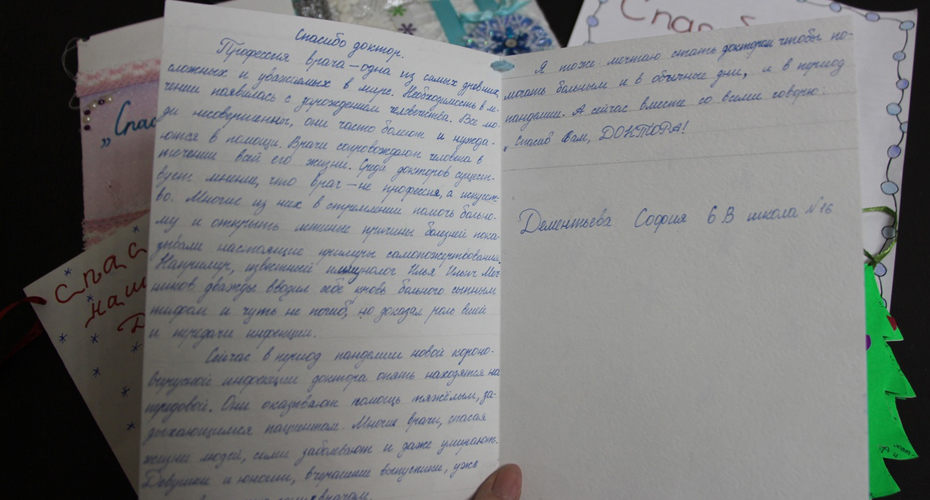 Спасибо доктор.
Профессия врача — одна из самых древних,
сложных и уважаемых в мире. Необходимость в ле-
чении появилась с зарождением человечества. Все лю-
ди несовершенны, они часто болеют и нужда-
ются в помощи. Врачи сопровождают человека в
течении всей его жизни. Среди докторов сущест-
вует мнение, что врач — не профессия, а искусст-
во. Многие из них в стремлении помочь больно-
му и открыть истинные причины болезней пока-
зывали настоящие примеры самопожертвования.
Например, известный иммунолог Илья Ильич Меч-
ников дважды вводил себе кровь больного сыпным
тифом и чуть не погиб, но доказал роль вшей
и передачи инфекции.
Сейчас в период пандемии новой корона-
вирусной инфекции доктора опять находятся на
передовой. Они оказывают помощь тяжёлым, за-
дыхающимся пациентам. Многие врачи, спасая
жизни людей, сами заболевают и даже умирают.
Девушки и юноши, вчерашние выпускники, уже
Я тоже мечтаю стать доктором чтобы по-
могать больным и в обычные дни, и в период
пандемии. А сейчас вместе со всеми говорю:
„Спасиб Вам, ДОКТОРА!
Дементьева София 6 В школа №16
„Спас
Спас
наш
Д
Спас